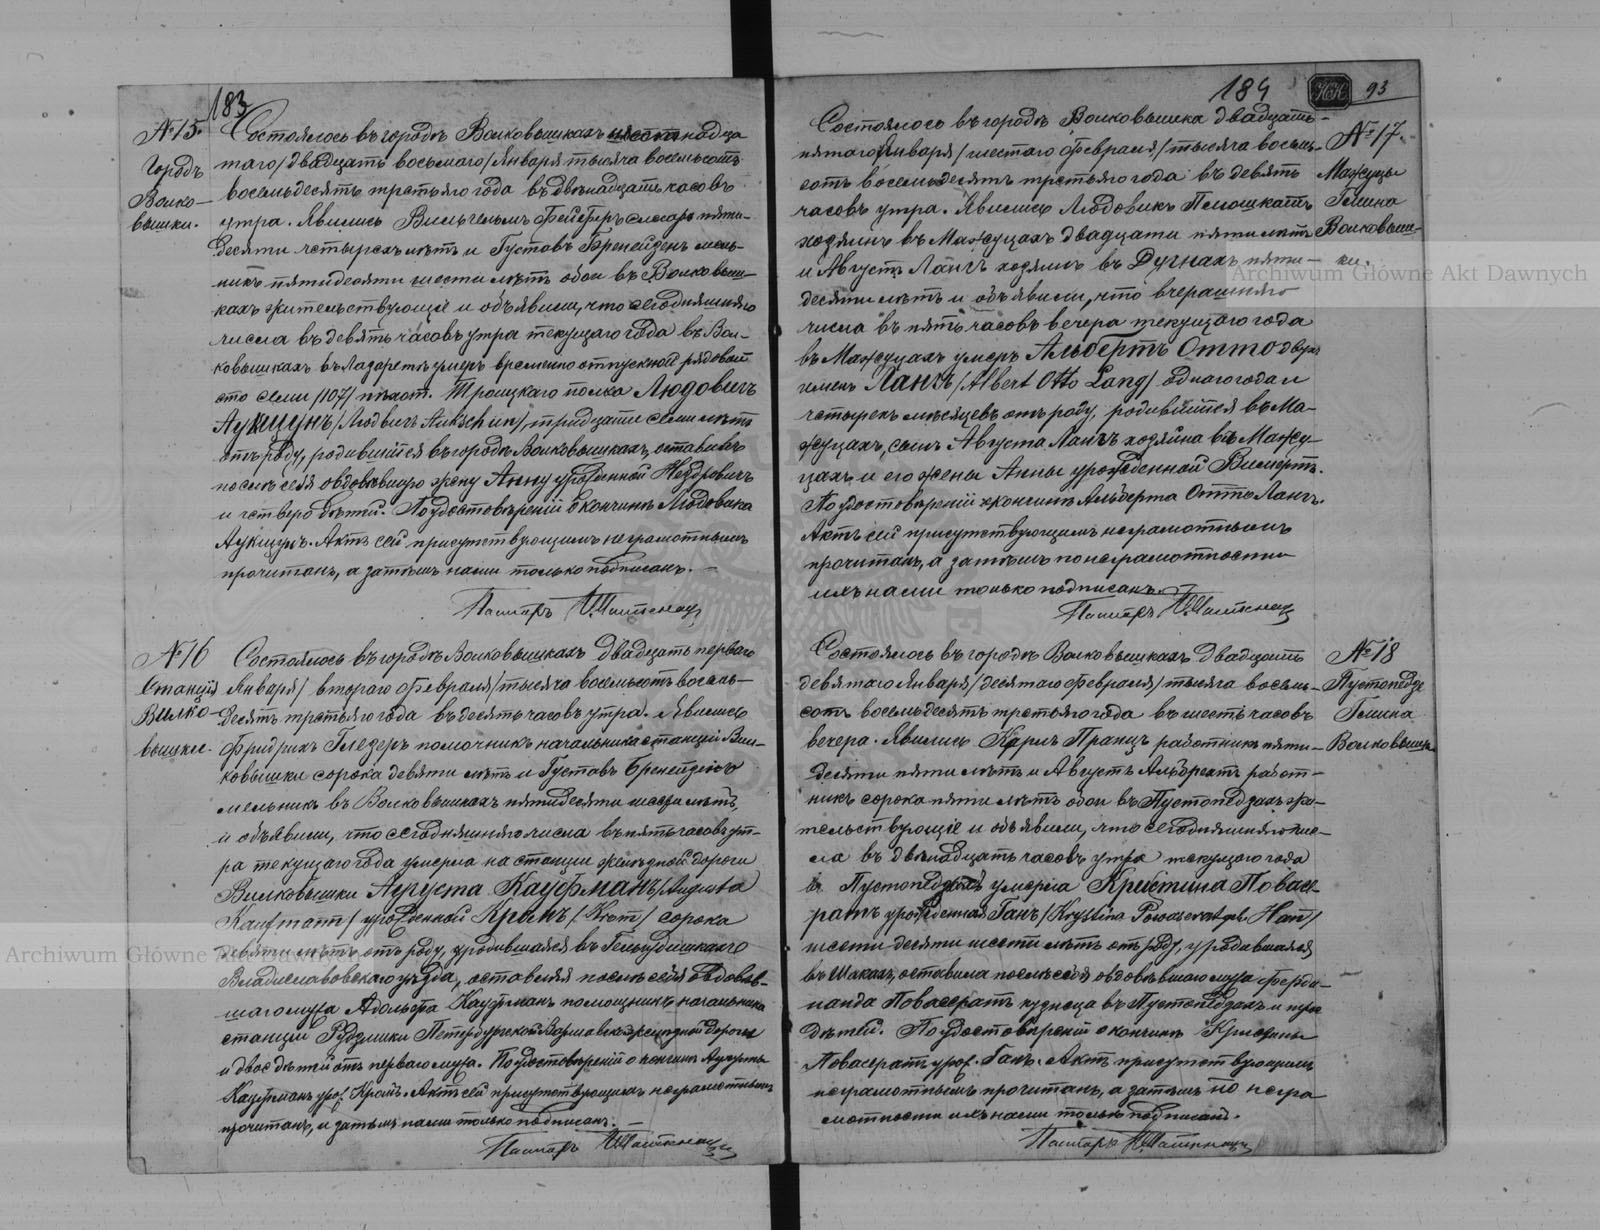 183
№ 15.
Городъ
Волко-
вышки.
Состоялось въ городѣ Волковышкахъ шестнадца
таго /двадцать восьмаго/ Января тысяча восемьсотъ
восемьдесятъ третьяго года въ двѣнадцать часовъ
утра. Явились Вильгельмъ Фейферъ слесарь пяти-
десяти четырехъ лѣтъ и Густавъ Бренейденъ мель-
никъ пятидесяти шести лѣтъ обои въ Волковыш-
кахъ жительствующіе и объявили, что сегодняшняго
числа въ девять часовъ утра текущаго года въ Вол-
ковышкахъ въ лазаретѣ умеръ временно отпускной рядовой
сто семи /107/ пѣхот. Троицкаго полка Людовигъ
Аукщунъ /Людвигъ Aukschun/, тридцати семи лѣтъ
отъ роду, родившійся въ городѣ Волковышкахъ, оставивъ
послѣ себя овдовѣвшую жену Анну урожденной
и четверо дѣтей. По удостовѣреніи о кончинѣ Людовика
Аукщунъ. Актъ сей присутствующимъ неграмотнымъ
прочитанъ, а затѣмъ нами только подписанъ. —
Пасторъ
№ 16
Станція
Вилко-
вышки
Состоялось въ городѣ Волковышкахъ двадцать перваго
Января /втораго Февраля/ тысяча восемьсотъ восемь-
десятъ третьяго года въ десять часовъ утра. Явились
Фридрихъ Гледеръ помочникъ начальника станціи Вил-
ковышки сорока девяти лѣтъ и Густавъ Бренейденъ
мельникъ въ Волковышкахъ пятидесяти шести лѣтъ,
и объявили, что сегодняшняго числа въ пять часовъ ут-
ра текущаго года умерла на станціи желѣзной дороги
Вилковышки Августа Кауфманъ /Augusta
Kaufmann/ урожденной Кранъ сорока
девяти лѣтъ отъ роду, уродившаяся въ
Владиславовскаго уѣзда, оставляя послѣ себя овдовѣв-
шаго мужа Адольфа Кауфманъ помощникъ начальника
станціи Рудзишки Петербургской Варшавской желѣзной дороги
и двое дѣтей отъ перваго мужа. По удостовѣреніи о кончинѣ Августы
Кауфманъ урож. Кранъ. Актъ сей присутствующимъ неграмотнымъ
прочитанъ, и затѣмъ нами только подписанъ. —
Пасторъ
184
93
№ 17.
Мажуцы
Гмина
Волковыш-
ки.
Состоялось въ городѣ Волковышка двадцать-
пятаго Января /шестаго Февраля/ тысяча восемь-
сотъ восемьдесятъ третьяго года въ девять
часовъ утра. Явились Людовикъ
хозяинъ въ Мажуцахъ двадцати пяти лѣтъ
и Августъ Лангъ хозяинъ въ пяти-
десяти лѣтъ и объявили, что вчерашняго
числа въ пять часовъ вечера текущаго года
въ Мажуцахъ умеръ Альбертъ Отто двухъ
именъ Лангъ /Albert Otto Lang/ одного года и
четырехъ мѣсяцевъ отъ роду, родившійся въ Ма-
жуцахъ, сынъ Августа Лангъ хозяина въ Мажу-
цахъ и его жены Анны урожденной
По удостовѣреніи о кончинѣ Альберта Отто Лангъ.
Актъ сей присутствующимъ неграмотнымъ
прочитанъ, а затѣмъ по неграмотности
ихъ нами только подписанъ.
Пасторъ
№ 18
Пустопедзе
Гмина
Волковышки
Состоялось въ городѣ Волковышкахъ двадцать
девятаго Января /десятаго Февраля/ тысяча восемь-
сотъ восемьдесятъ третьяго года въ шесть часовъ
вечера. Явились Карлъ Пранцъ работникъ пяти-
десяти пяти лѣтъ и Августъ Альбрехтъ работ-
никъ сорока пяти лѣтъ обои въ Пустопедзахъ жи-
тельствующіе и объявили, что сегодняшняго чис-
ла въ двѣнадцать часовъ утра текущаго года
въ Пустопедзахъ умерла Кристина Повасе-
ратъ урожденная Ганъ /Krystina Powaserat geb. Han/
шести десяти шести лѣтъ отъ роду, уродившаяся
въ Шакахъ, оставила послѣ себя овдовѣвшаго мужа Ферди-
нанда Повасератъ кузнеца въ Пустопедзахъ и трое
дѣтей. По удостовѣреніи о кончинѣ Кристины
Повасератъ урож. Ганъ. Актъ присутствующимъ
неграмотнымъ прочитанъ, а затѣмъ по негра
мотности ихъ нами только подписанъ.
Пасторъ
Archiwum Główne Akt Dawnych
Archiwum Główne Akt Dawnych